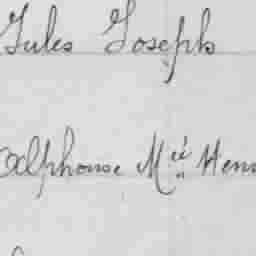 Jules Joseph
Alphonse Mie Henr